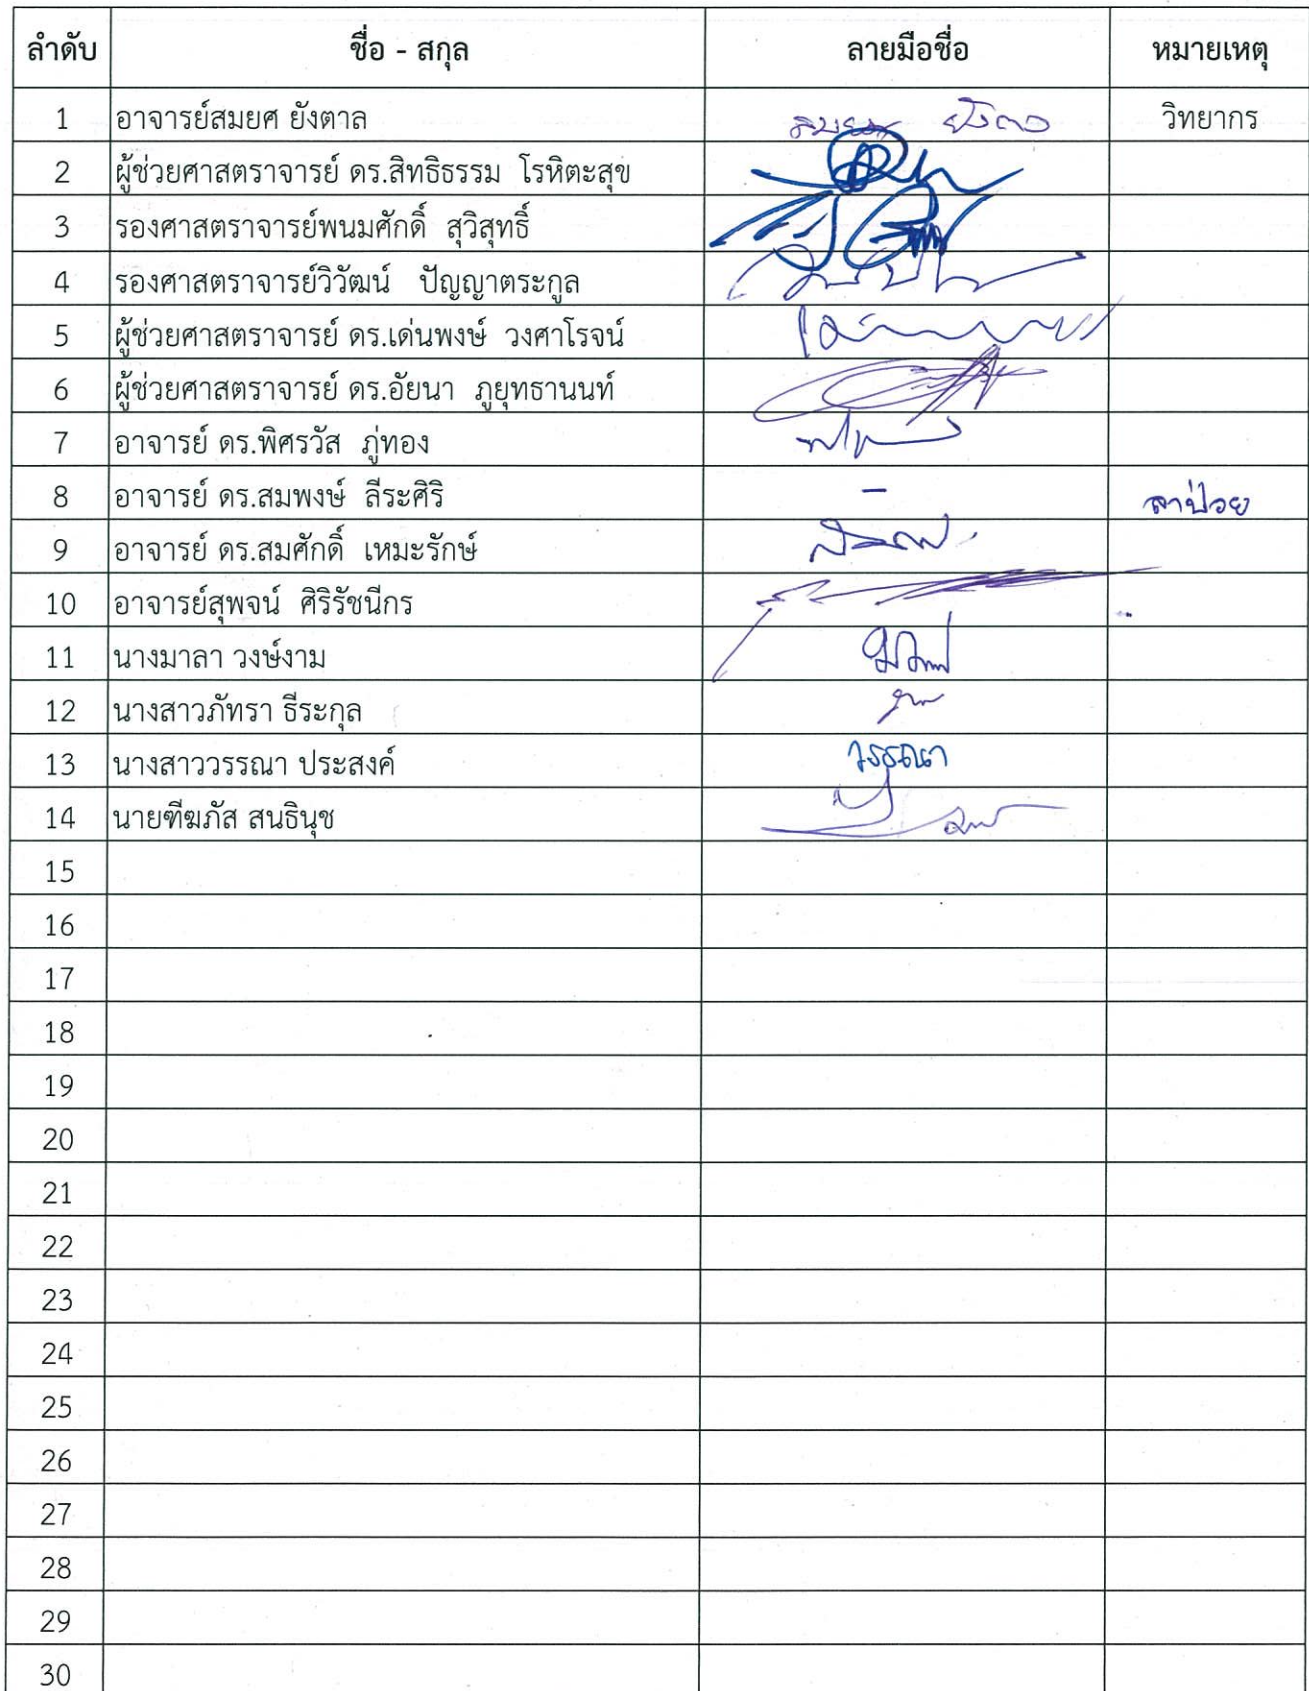 ลำดับ ชื่อ - สกุล ลายมือชื่อ หมายเหตุ
1 อาจารย์สมยศ ยังตาล สมยศ ยังตาล วิทยากร
2 ผู้ช่วยศาสตราจารย์ ดร.สิทธิธรรม โรหิตะสุข
3 รองศาสตราจารย์พนมศักดิ์ สุวิสุทธิ์
4 รองศาสตราจารย์วิวัฒน์ ปัญญาตระกูล
5 ผู้ช่วยศาสตราจารย์ ดร.เด่นพงษ์ วงศาโรจน์
6 ผู้ช่วยศาสตราจารย์ ดร.อัยนา ภูยุทธานนท์
7 อาจารย์ ดร.พิศรวัส ภู่ทอง
8 อาจารย์ ดร.สมพงษ์ ลีระศิริ - ลาป่วย
9 อาจารย์ ดร.สมศักดิ์ เหมะรักษ์
10 อาจารย์สุพจน์ ศิริรัชนีกร
11 นางมาลา วงษ์งาม
12 นางสาวภัทรา ธีระกุล
13 นางสาววรรณา ประสงค์ วรรณา
14 นายฑีฆภัส สนธินุช
15
16
17
18
19
20
21
22
23
24
25
26
27
28
29
30